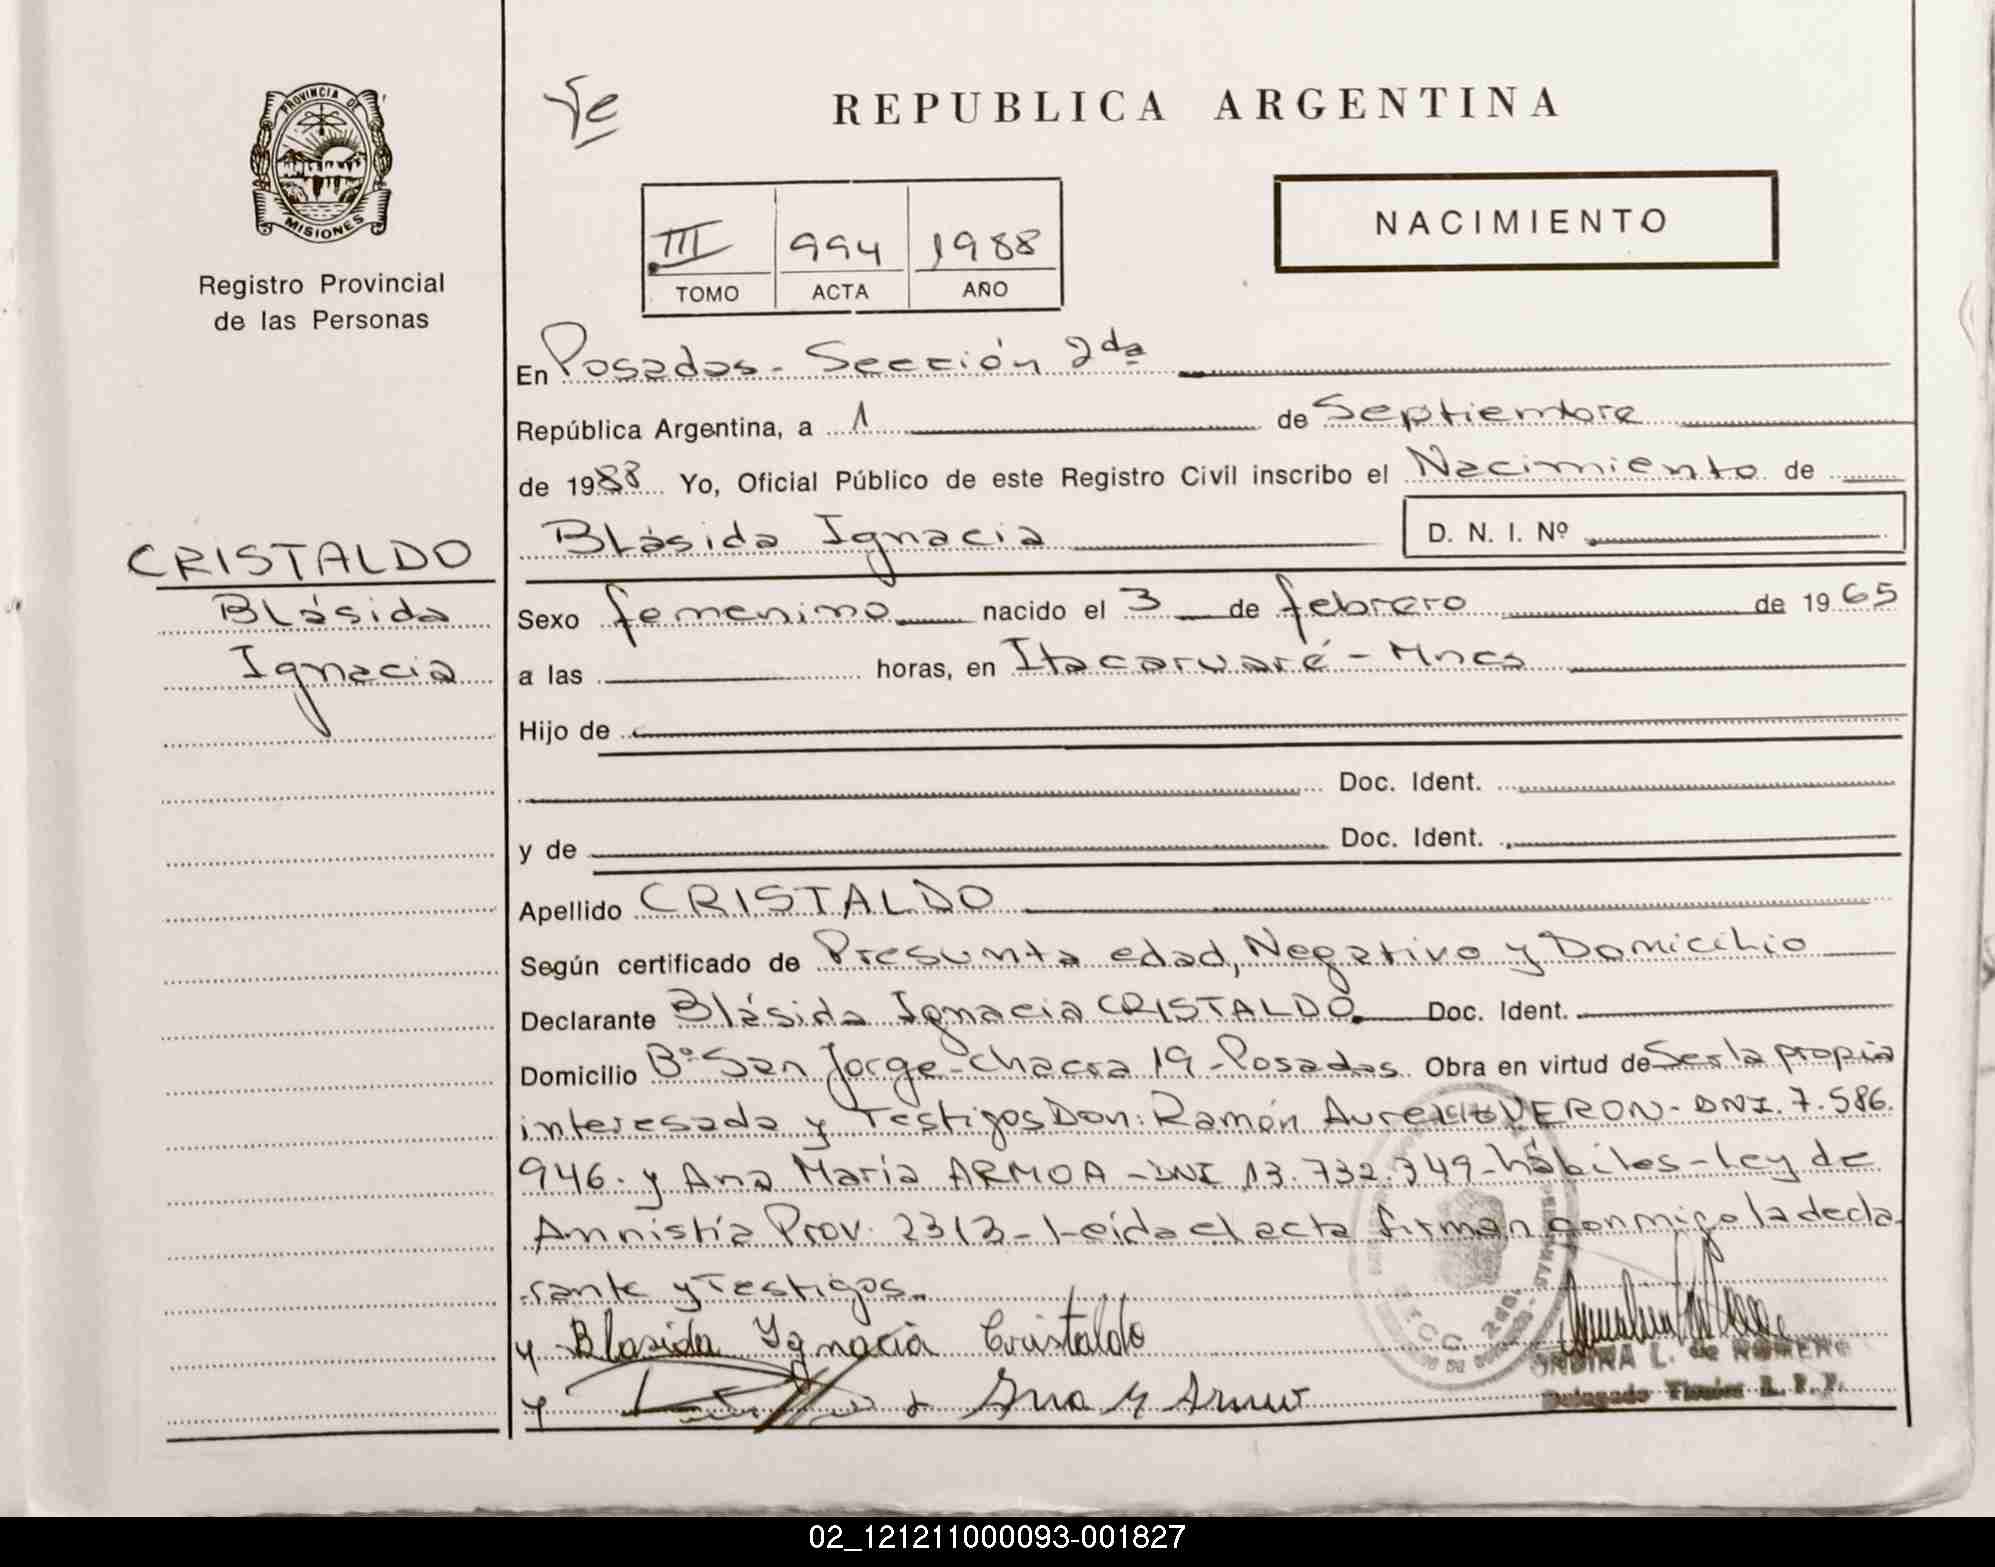 PROVINCIA DE
MISIONES
Registro Provincial
de las Personas
CRISTALDO
Blásida
Ignacia
REPUBLICA ARGENTINA
NACIMIENTO
III 994 1988
TOMO ACTA AÑO
En Posadas - Sección 2da
República Argentina, a 1 de Septiembre
de 1988 Yo, Oficial Público de este Registro Civil inscribo el Nacimiento de
Blásida Ignacia D. N. I. Nº
Sexo femenino nacido el 3 de febrero de 1965
a las horas, en Itacaruaré - Mnes
Hijo de
Doc. Ident.
y de Doc. Ident.
Apellido CRISTALDO
Según certificado de Presunta edad, Negativo y Domicilio
Declarante Blásida Ignacia CRISTALDO Doc. Ident.
Domicilio Bº San Jorge - Chacra 19 - Posadas Obra en virtud de Ser la propia
interesada y Testigos Don: Ramón Aurelio VERON - DNI. 7.586.
946. y Ana María ARMOA - DNI 13.732.349 - hábiles - Ley de
Amnistía Prov. 2313 - Leída el acta firman conmigo la decla
rante y Testigos.
Blasida Ignacia Cristaldo
Ana M Armoa
ONDINA L. de ROMERO
Delegado Titular R. P. P.
02_121211000093-001827